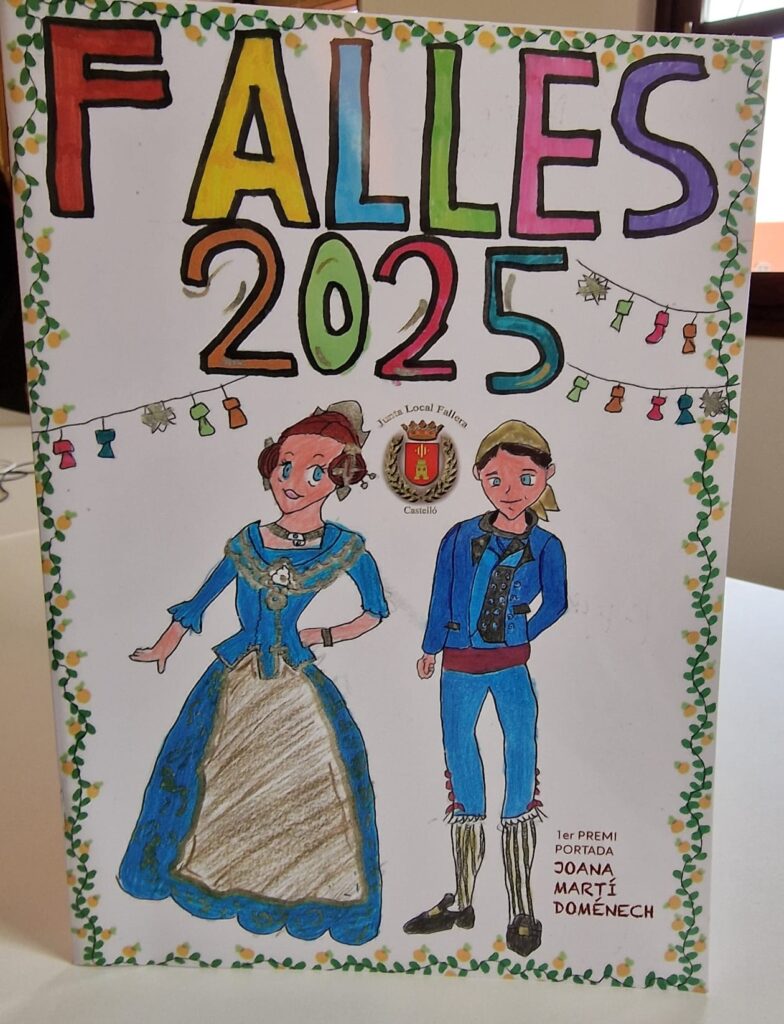 FALLES
2025
Junta Local Fallera
Castelló
1er PREMI
PORTADA
JOANA
MARTÍ
DOMÉNECH